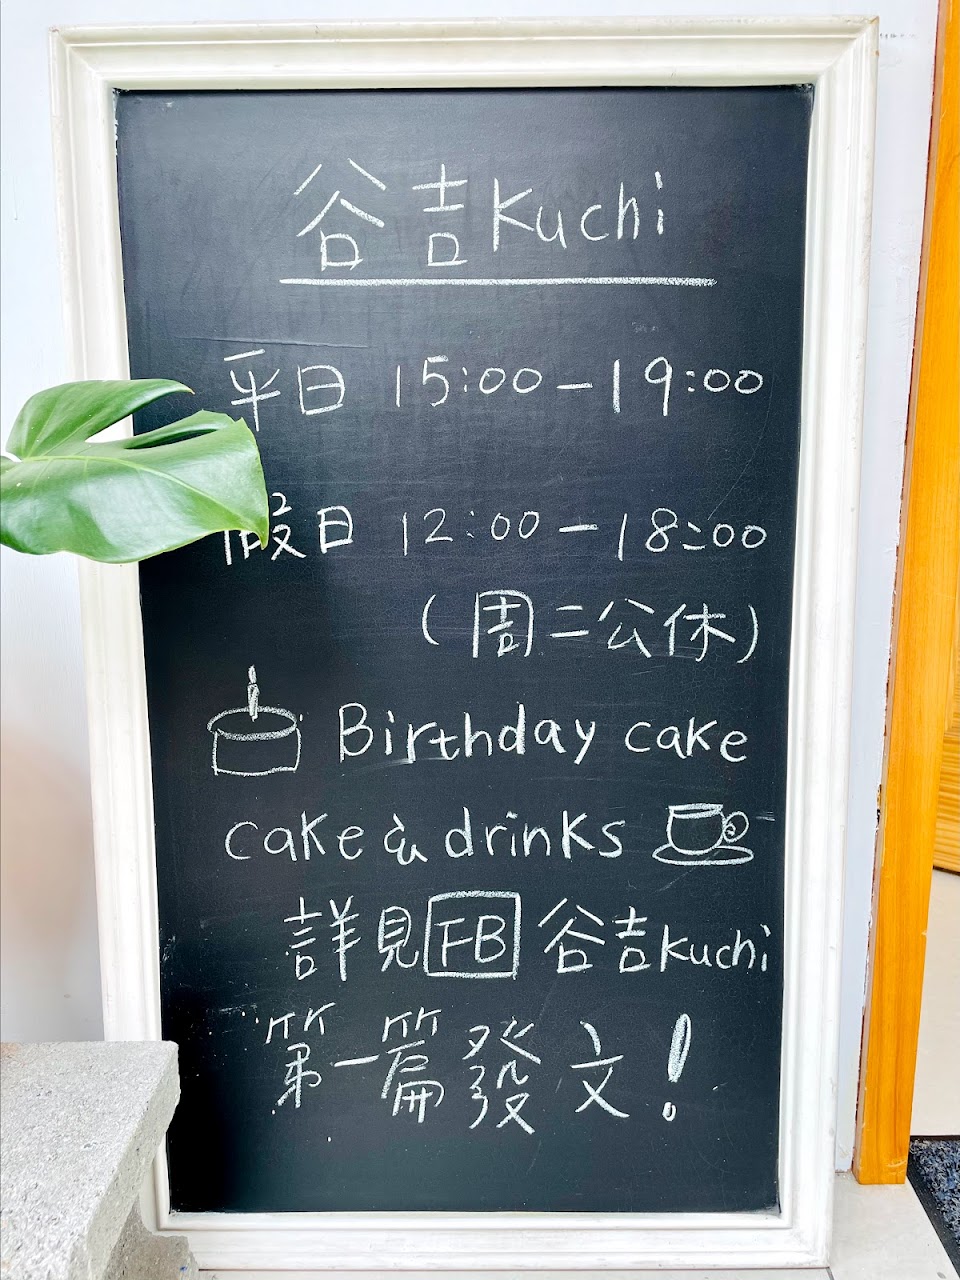 谷吉Kuchi
平日 15:00-19:00
假日 12:00-18:00
(周二公休)
Birthday cake
cake & drinks
詳見FB谷吉kuchi
第一篇發文!